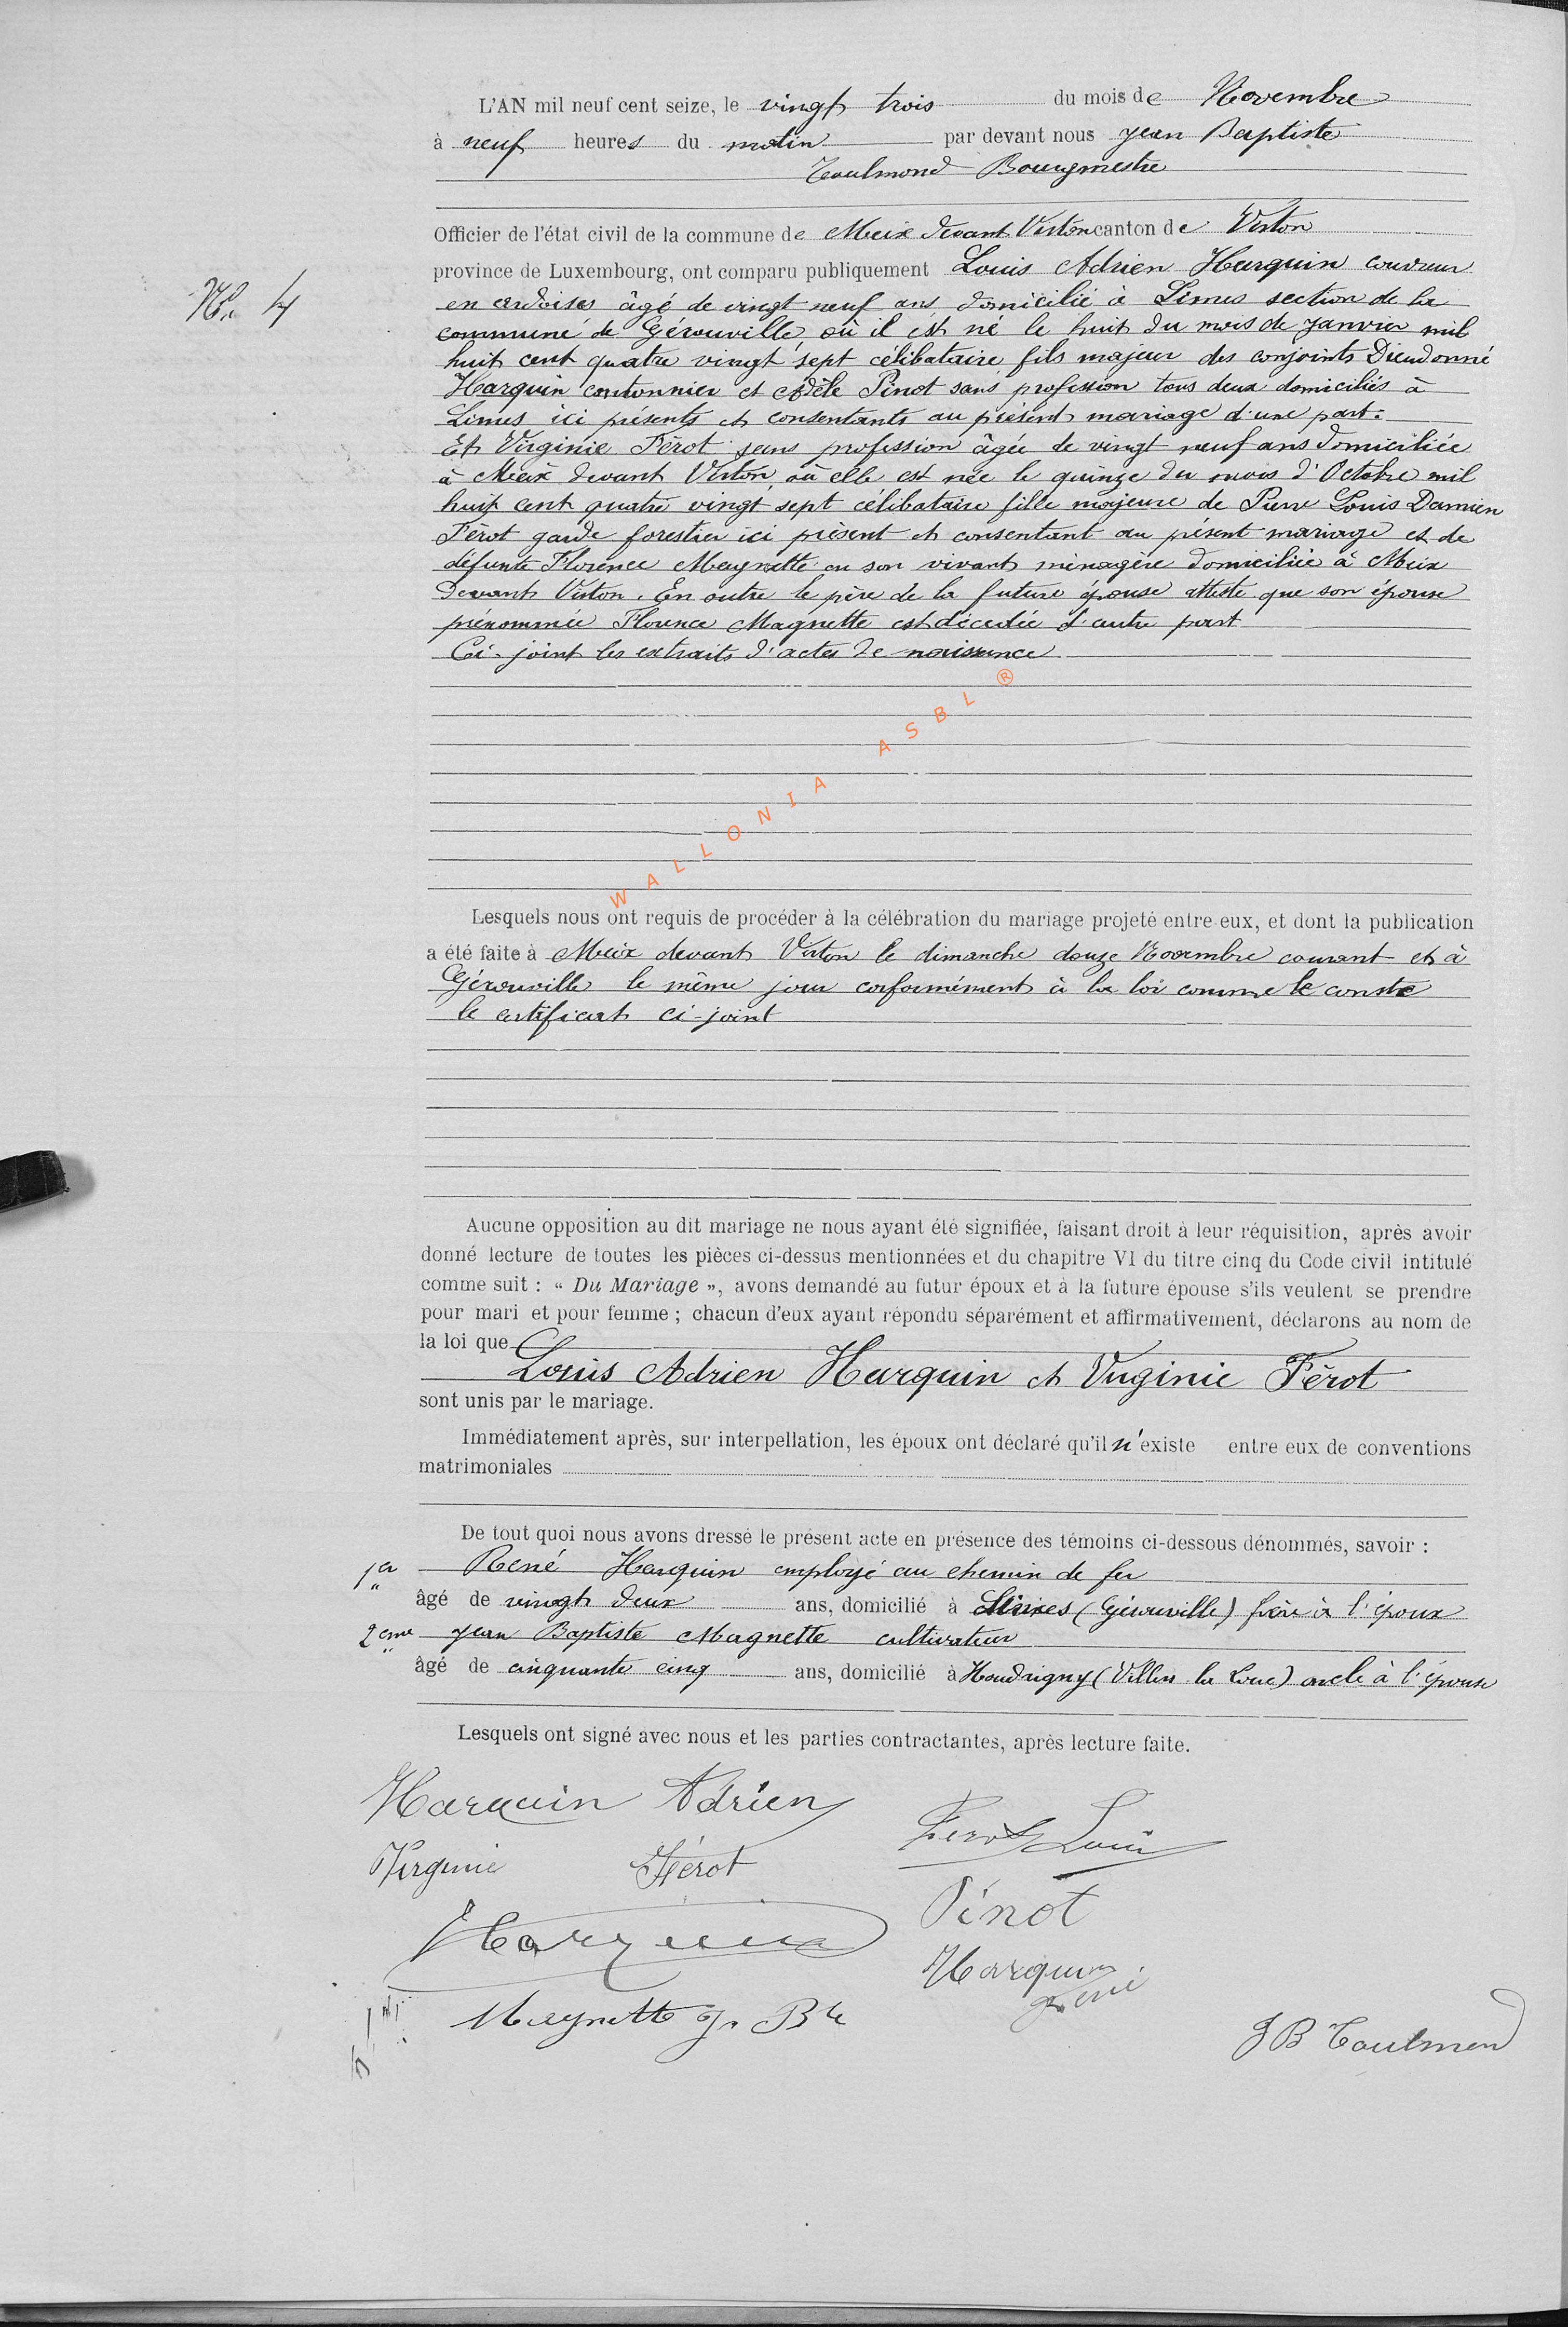 L'AN mil neuf cent seize, le vingt trois du mois de Novembre
à neuf heures du matin par devant nous Jean Baptiste
Toulmond Bourgmestre
Officier de l'état civil de la commune de Meix devant Virton canton de Virton
province de Luxembourg, ont comparu publiquement Louis Adrien Harquin couvreur
N. 4
en ardoises âgé de vingt neuf ans domicilié à Limes section de la
commune de Gérouville, où il est né le huit du mois de Janvier mil
huit cent quatre vingt sept célibataire fils majeur des conjoints Dieudonné
Harquin cantonnier et Adèle Pinot sans profession tous deux domiciliés à
Limes ici présents et consentants au présent mariage d'une part.
Et Virginie Férot sans profession âgée de vingt neuf ans domiciliée
à Meix devant Virton, où elle est née le quinze du mois d'Octobre mil
huit cent quatre vingt sept célibataire fille majeure de Pierre Louis Damien
Férot garde forestier ici présent et consentant au présent mariage et de
défunte Florence Magnette en son vivant ménagère domiciliée à Meix
devant Virton. En outre le père de la future épouse atteste que son épouse
prénommée Florence Magnette est décédée d'autre part
Ci-joint les extraits d'actes de naissance
WALLONIA ASBL ®
Lesquels nous ont requis de procéder à la célébration du mariage projeté entre eux, et dont la publication
a été faite à Meix devant Virton le dimanche douze Novembre courant et à
Gérouville le même jour conformément à la loi comme le conste
le certificat ci-joint
Aucune opposition au dit mariage ne nous ayant été signifiée, faisant droit à leur réquisition, après avoir
donné lecture de toutes les pièces ci-dessus mentionnées et du chapitre VI du titre cinq du Code civil intitulé
comme suit : « Du Mariage », avons demandé au futur époux et à la future épouse s'ils veulent se prendre
pour mari et pour femme ; chacun d'eux ayant répondu séparément et affirmativement, déclarons au nom de
la loi que
Louis Adrien Harquin et Virginie Férot
sont unis par le mariage.
Immédiatement après, sur interpellation, les époux ont déclaré qu'il n'existe entre eux de conventions
matrimoniales
De tout quoi nous avons dressé le présent acte en présence des témoins ci-dessous dénommés, savoir :
1er René Harquin employé au chemin de fer
âgé de vingt deux ans, domicilié à Limes (Gérouville) frère à l'époux
2eme Jean Baptiste Magnette cultivateur
âgé de cinquante cinq ans, domicilié à Houdrigny (Villers la Loue) oncle à l'épouse
Lesquels ont signé avec nous et les parties contractantes, après lecture faite.
Harquin Adrien
Ferot Louis
Virginie Férot
Pinot
Harquin
Harquin
René
Magnette J. Bte
JB Toulmond